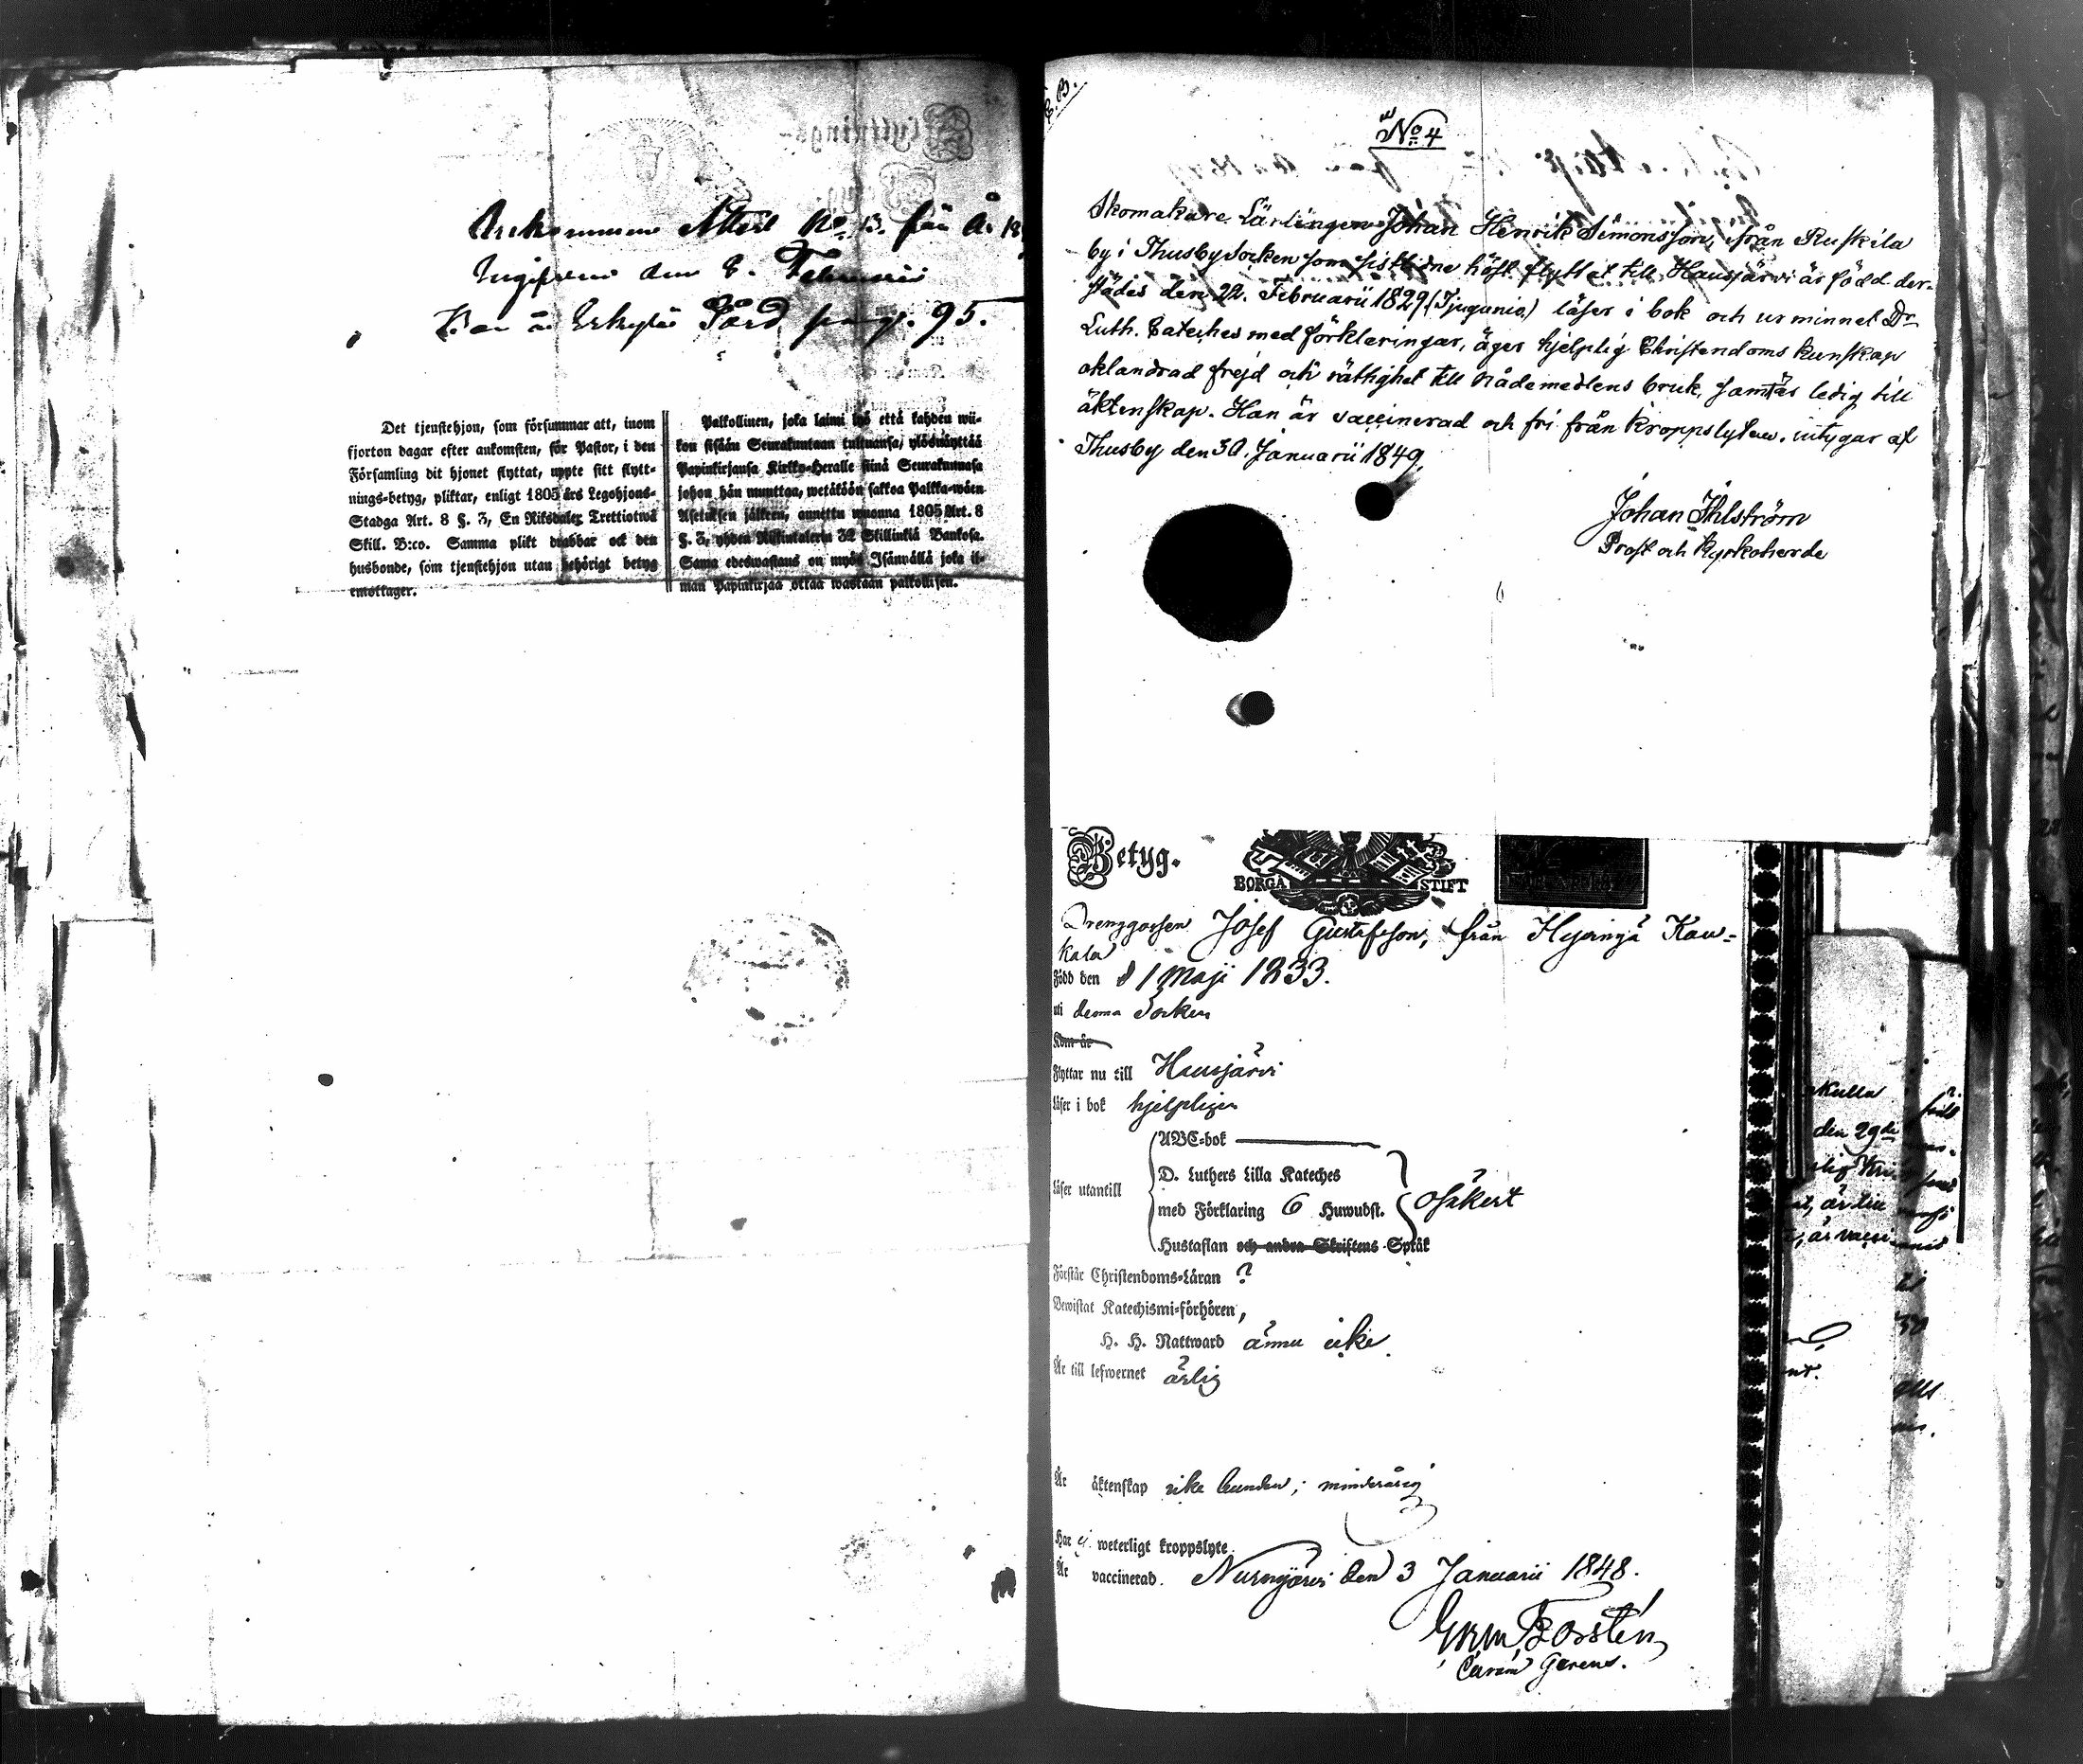 Ankommen Attest No 13. från År 18
Ingifven den 8. Februari
Bor i Erkylä Gård, pag. 95.
Det tjenstehjon, som försummar att, inom
fjorton dagar efter ankomsten, för Pastor, i den
Församling dit hjonet flyttat, uppte sitt flytt-
nings-betyg, pliktar, enligt 1805 års Legohjons-
Stadga Art. 8 §. 3, En Riksdaler Trettiotwå
Skill. B:co. Samma plikt drabbar ock den
husbonde, som tjenstehjon utan behörigt betyg
emottager.
Palkollinen, joka laimi lyö että kahden wii-
kon sisään Seurakuntaan tultuansa, ylösnäyttää
Papinkirjansa Kirkko-Heralle siinä Seurakunnasa
johon hän muuttaa, wetäköön sakkoa Palkka-wäen
Asetuksen jälkeen, annettu wuonna 1805 Art. 8
§. 3, yhden Riikintalerin 32 Skillinkiä Bankosa.
Sama edeswastaus on myös Isännällä joka il-
man Papinkirjaa ottaa wastaan palkollisen.
No 4
Skomakare Lärlingen Johan Henrik Simonsson, ifrån Ruskila
by i Thusby Socken som sistledne höst flyttat till Hausjärvi är född der-
städes den 22. Februarii 1829, (Tjugunio,) läser i bok och ur minnet Dr
Luth. Cateches med förkleringar, äger hjelplig Christendoms kunskap
oklandrad frejd och rättighet till nådemedlens bruk, samt är ledig till
äktenskap. Han är vaccinerad och fri från kroppslyten, intygar af
Thusby den 30. Januarii 1849.
Johan Ihlström
Prost och Kyrkoherde
Betyg.
BORGÅ STIFT
Drenggossen Josef Gustafsson, från Hyvingä Kau-
kala
Född den 1 Maji 1833.
uti denna Socken
Kom år
Flyttar nu till Hausjärvi
Läser i bok hjelpligen
ABC-bok
D. Luthers Lilla Kateches
Läser utantill
med Förklaring 6 Huwudst. osäkert
Hustaflan och andra Skriftens Språk
Förstår Christendoms-Läran ?
Bewistat Katechismi-förhören,
H. H. Nattward ännu icke
Är till lefwernet ärlig
Är äktenskap icke bunden; minderårig
Har ej weterligt kroppslyte.
Är vaccinerad. Nurmijärvi den 3 Januarii 1848.
Borstén
Curam Gerens.
den 29de